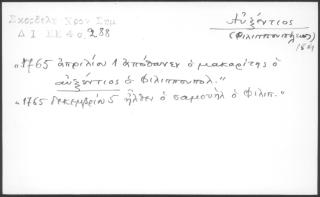 Σκορδέλη Χρον. Σημ.
Δ Ι ΕΕ 4 σ. 288
Αὐξέντιος
(Φιλιππουπόλεως)
"1765 ἀπριλίου 1 ἀπόθανεν ὁ μακαρίτης ὁ
αὐξέντιος ὁ Φιλιππουπολ."
"1765 δεκεμβρίου 5 ἦλθεν ὁ σαμουὴλ ὁ Φιλιπ."